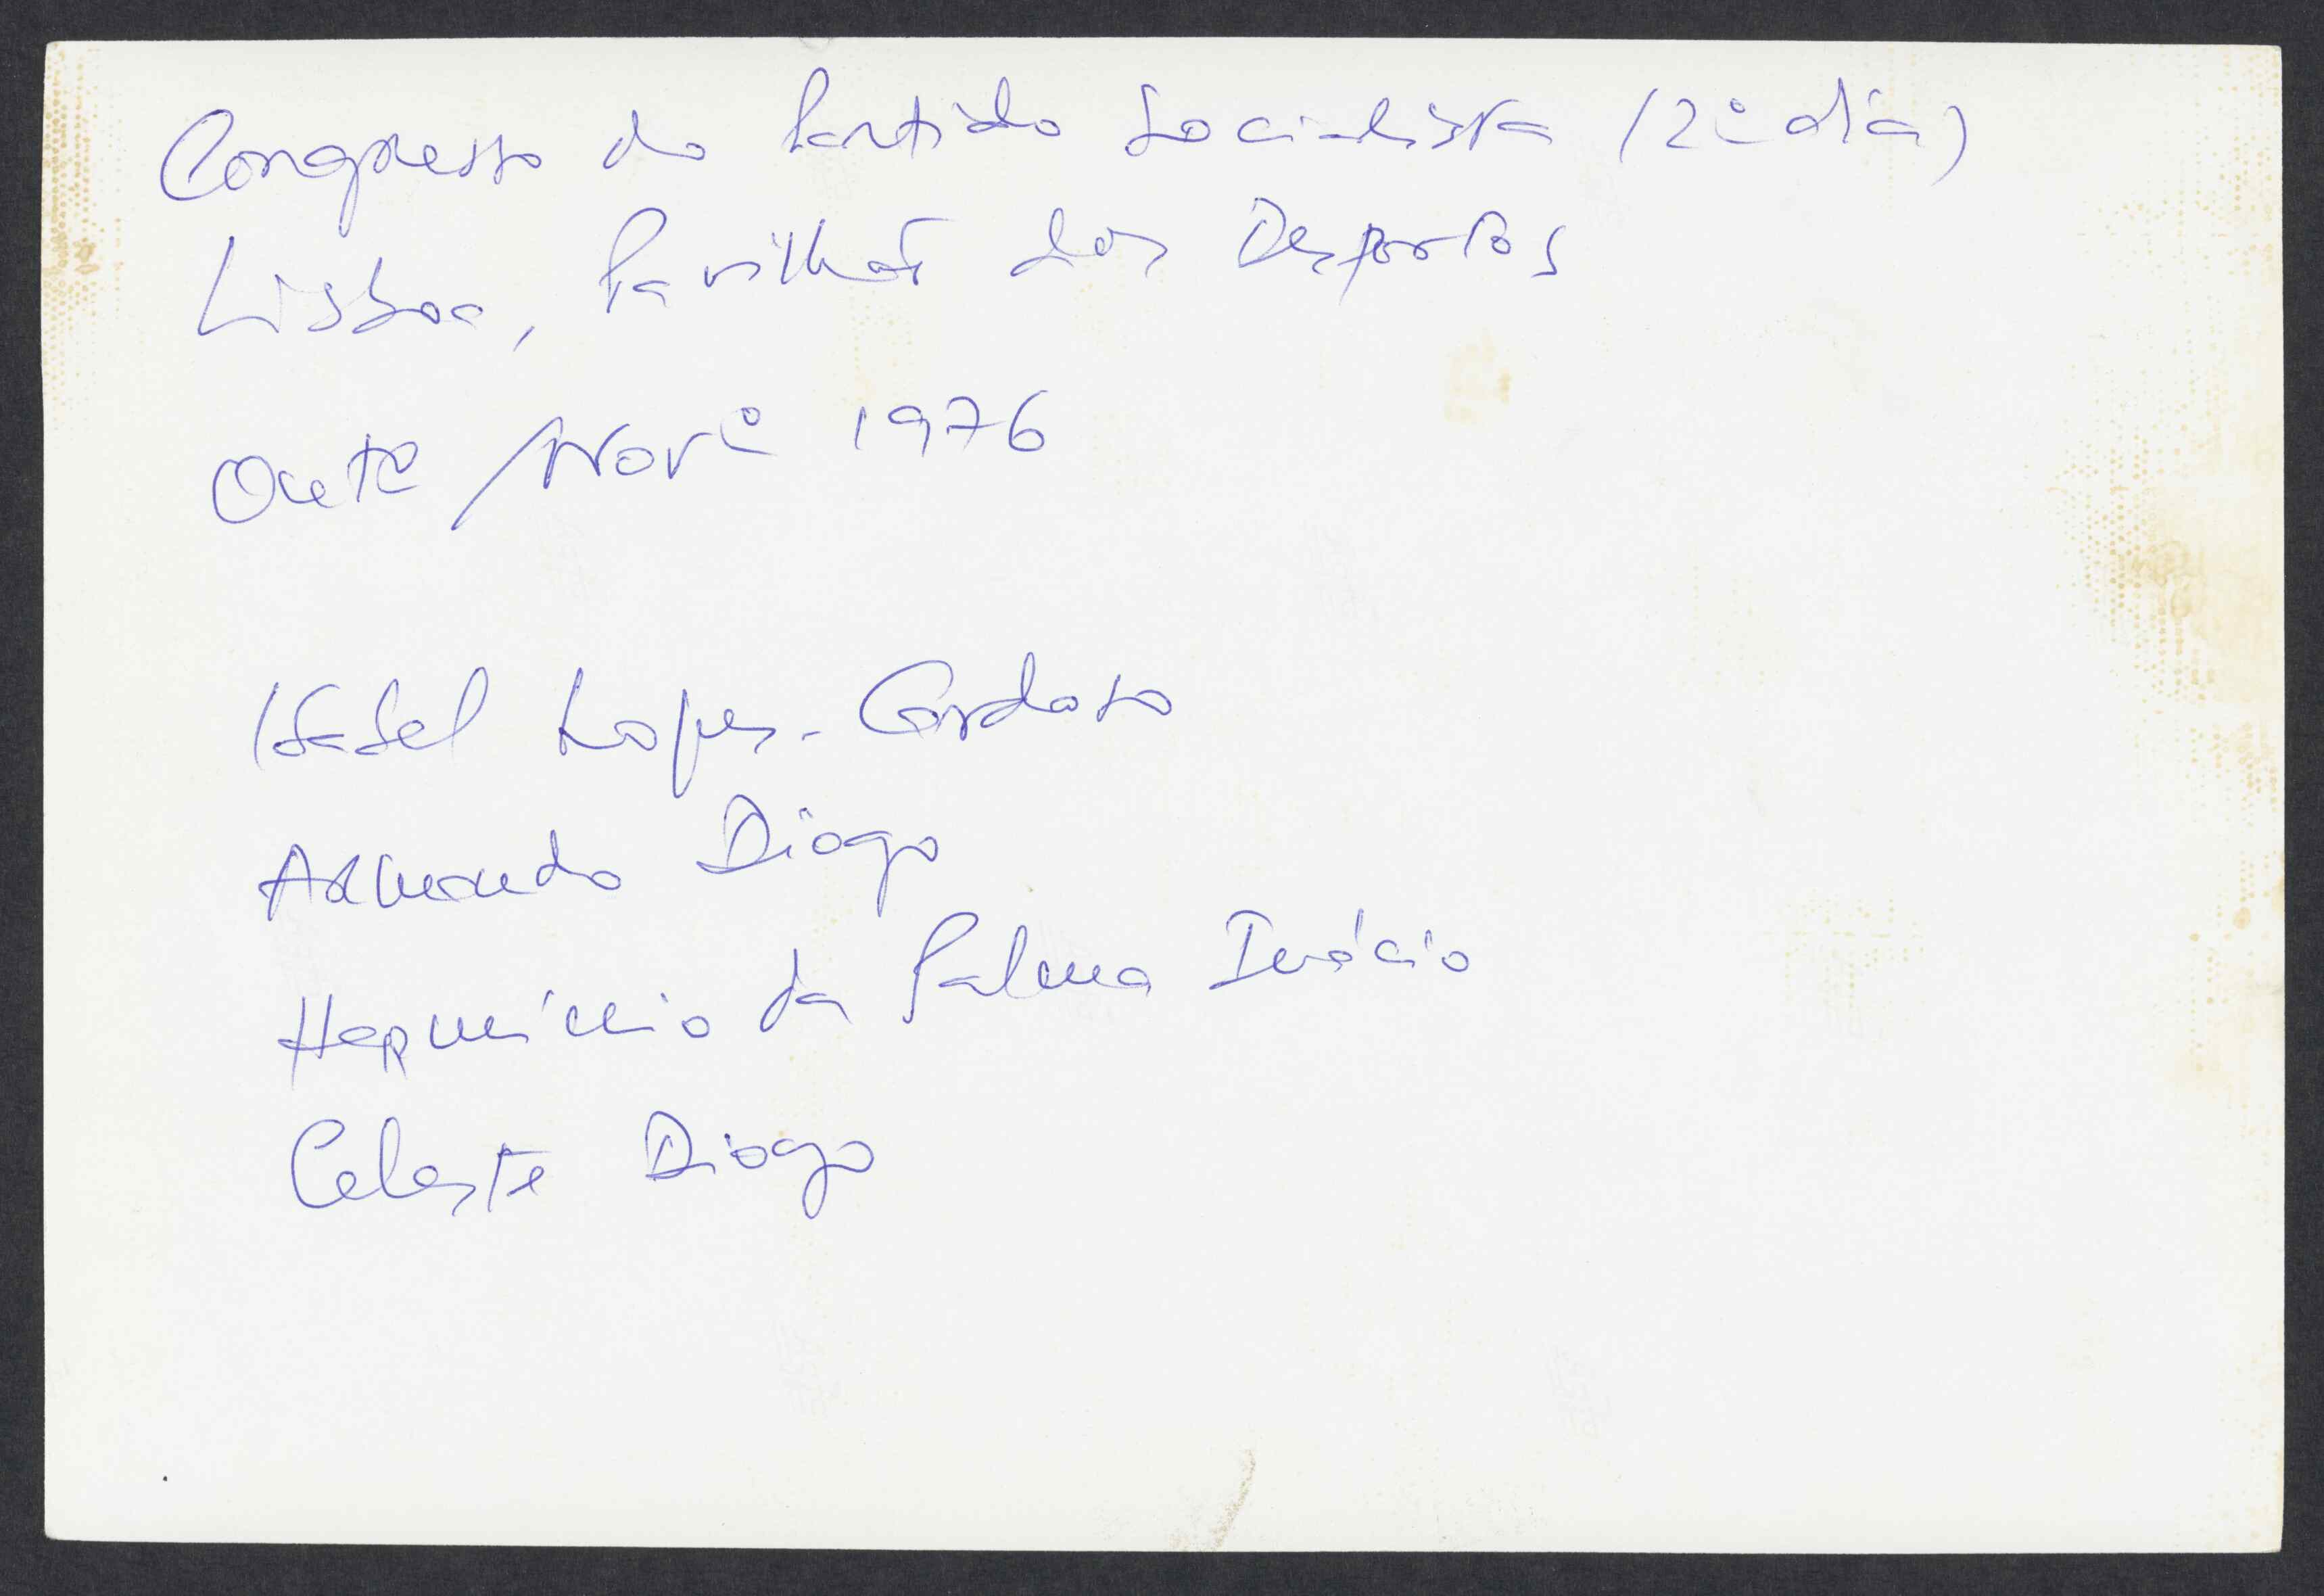 Congresso do Partido Socialista (2º dia)
Lisboa, Pavilhão dos Desportos
Outº/Novº 1976
Isabel Lopes-Cardoso
Armando Diogo
Hermínio da Palma Inácio
Celeste Diogo